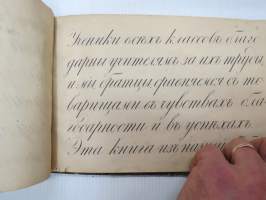 Ученики всѣхъ классовъ благо
дарны учителямъ за ихъ труды,
и мы братцы сравняемся съ то
варищами въ чувствахъ бла
годарности и въ успѣхахъ.
Эта книга изъ нашей